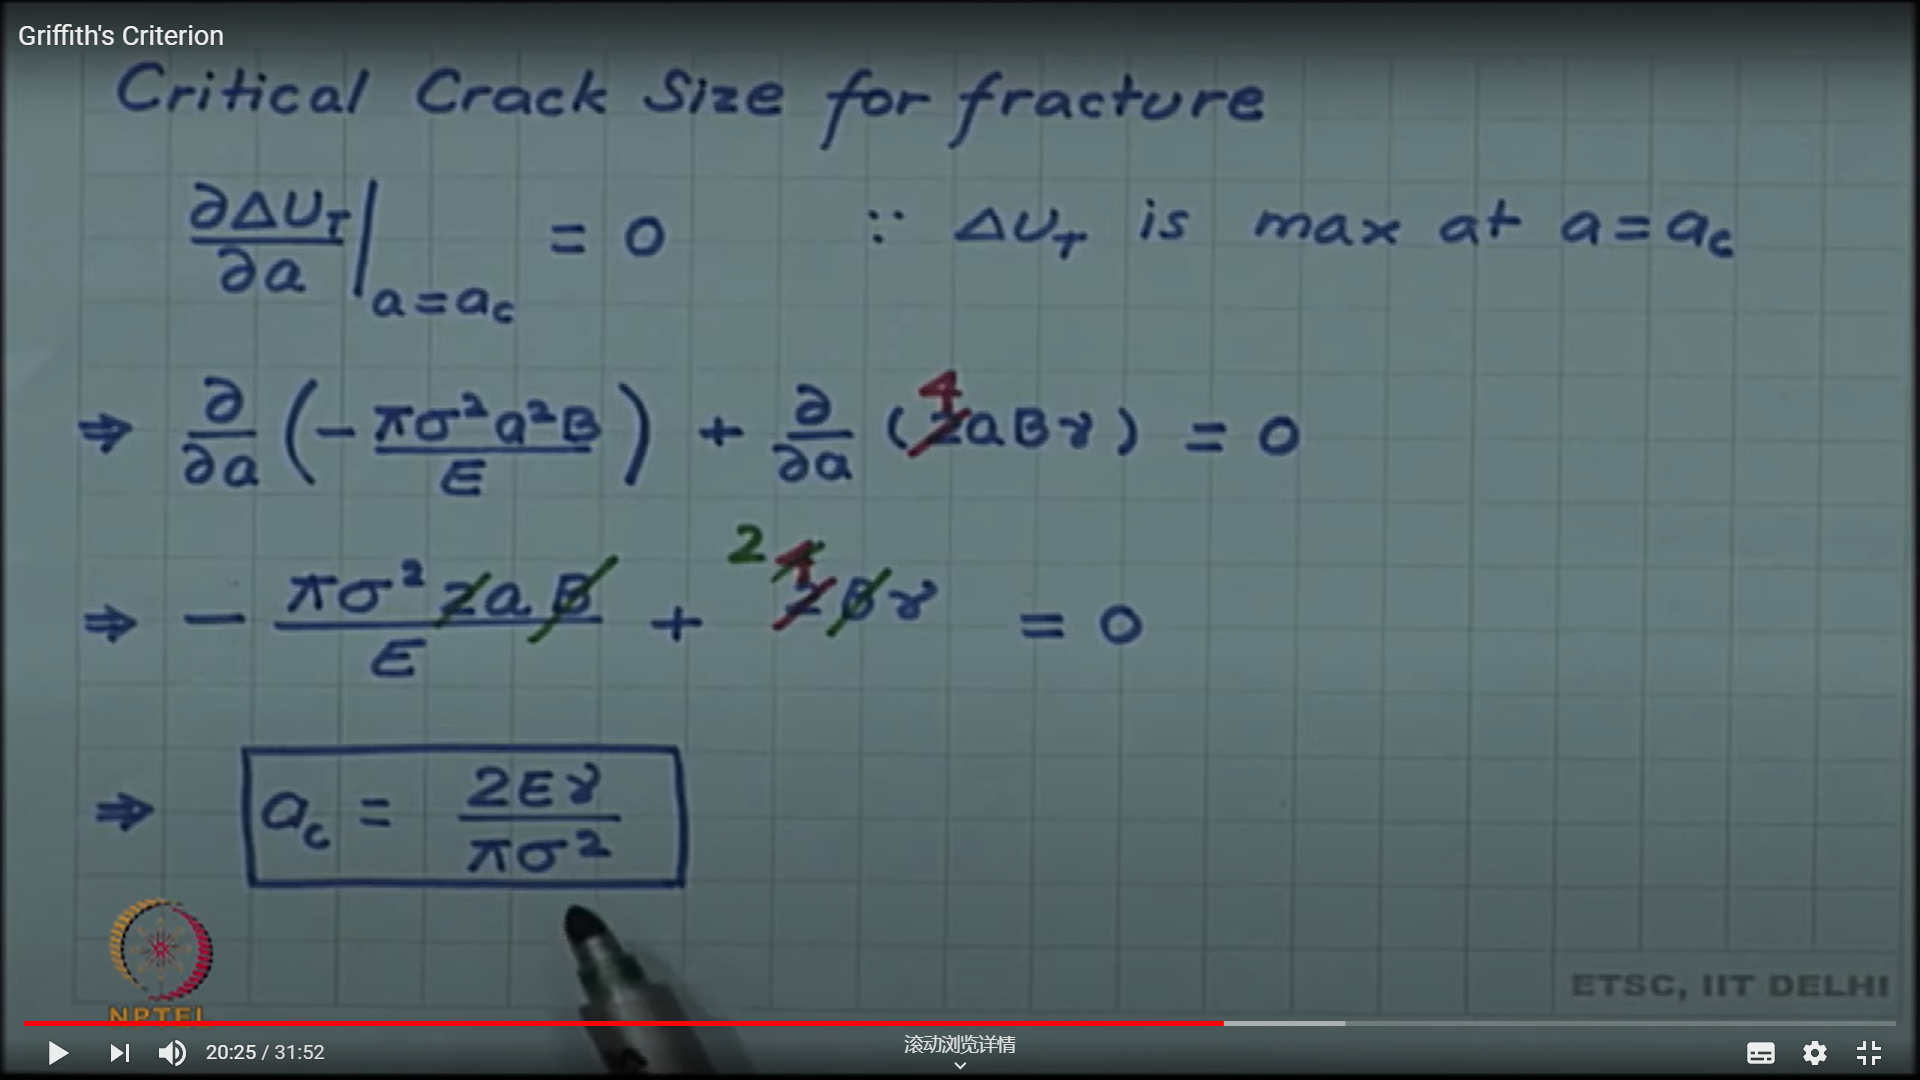 Griffith's Criterion
Critical Crack Size for fracture
∂ΔU_T/∂a |_{a=a_c} = 0 ∵ ΔU_T is max at a = a_c
⇒ ∂/∂a (- πσ²a²B/E) + ∂/∂a (4aBγ) = 0
⇒ - πσ²2aB/E + 2 4 2Bγ = 0
⇒ a_c = 2Eγ/πσ²
NPTEL
ETSC, IIT DELHI
20:25 / 31:52
滚动浏览详情